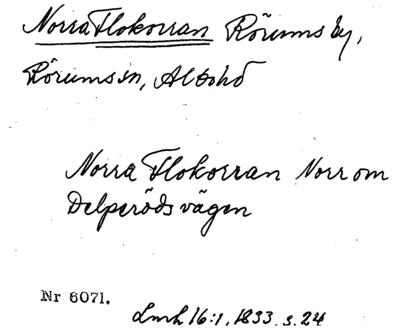 Norra Flokorran Rörums by,
Rörums sn, Albo hd
Norra Flokorran Norr om
Delperöds vägen
Nr 6071.
Lmh 16:1, 1833 s. 24